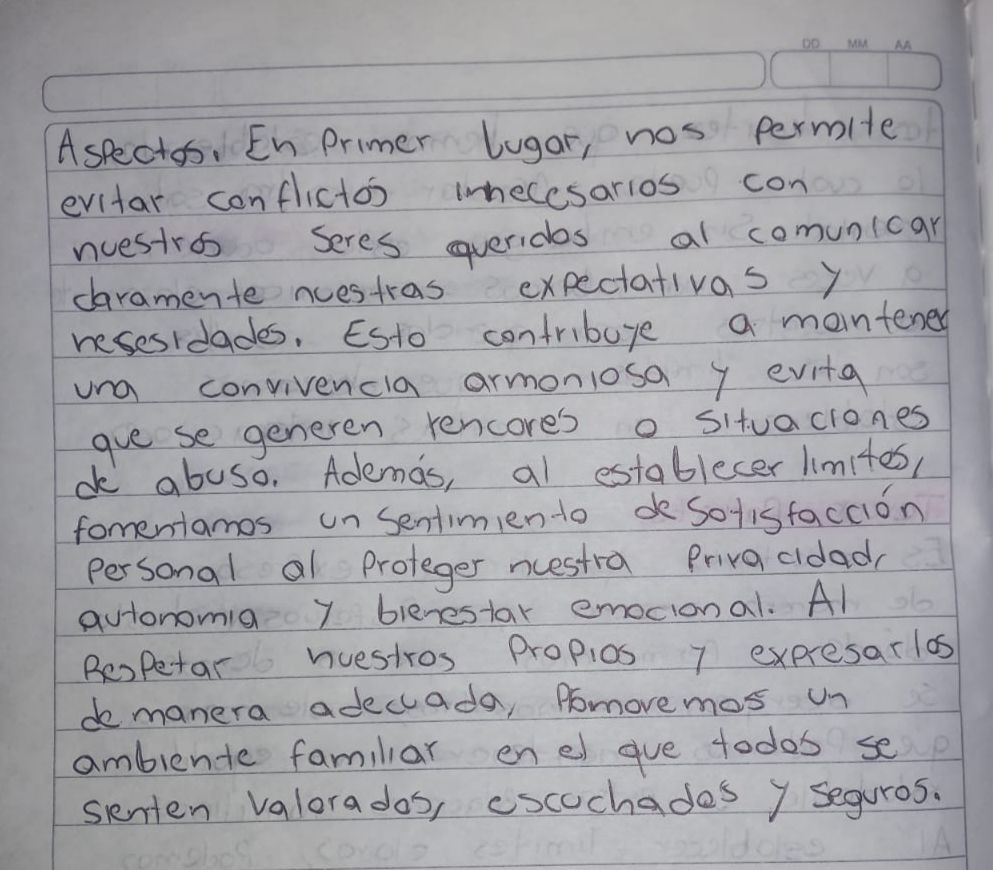 DD MM AA
Aspectos. En Primer lugar, nos permite
evitar conflictos innecesarios con
nuestros seres queridos al comunicar
claramente nuestras expectativas y
nesesidades. Esto contribuye a mantener
una convivencia armoniosa y evita
que se generen rencores o situaciones
de abuso. Además, al establecer limites,
fomentamos un sentimiento de satisfacción
Personal al Proteger nuestra Privacidad,
autonomia y bienestar emocional. Al
Respetar nuestros Propios y expresarlos
de manera adecuada, Promovemos un
ambiente familiar en el que todos se
sienten valorados, escuchados y seguros.